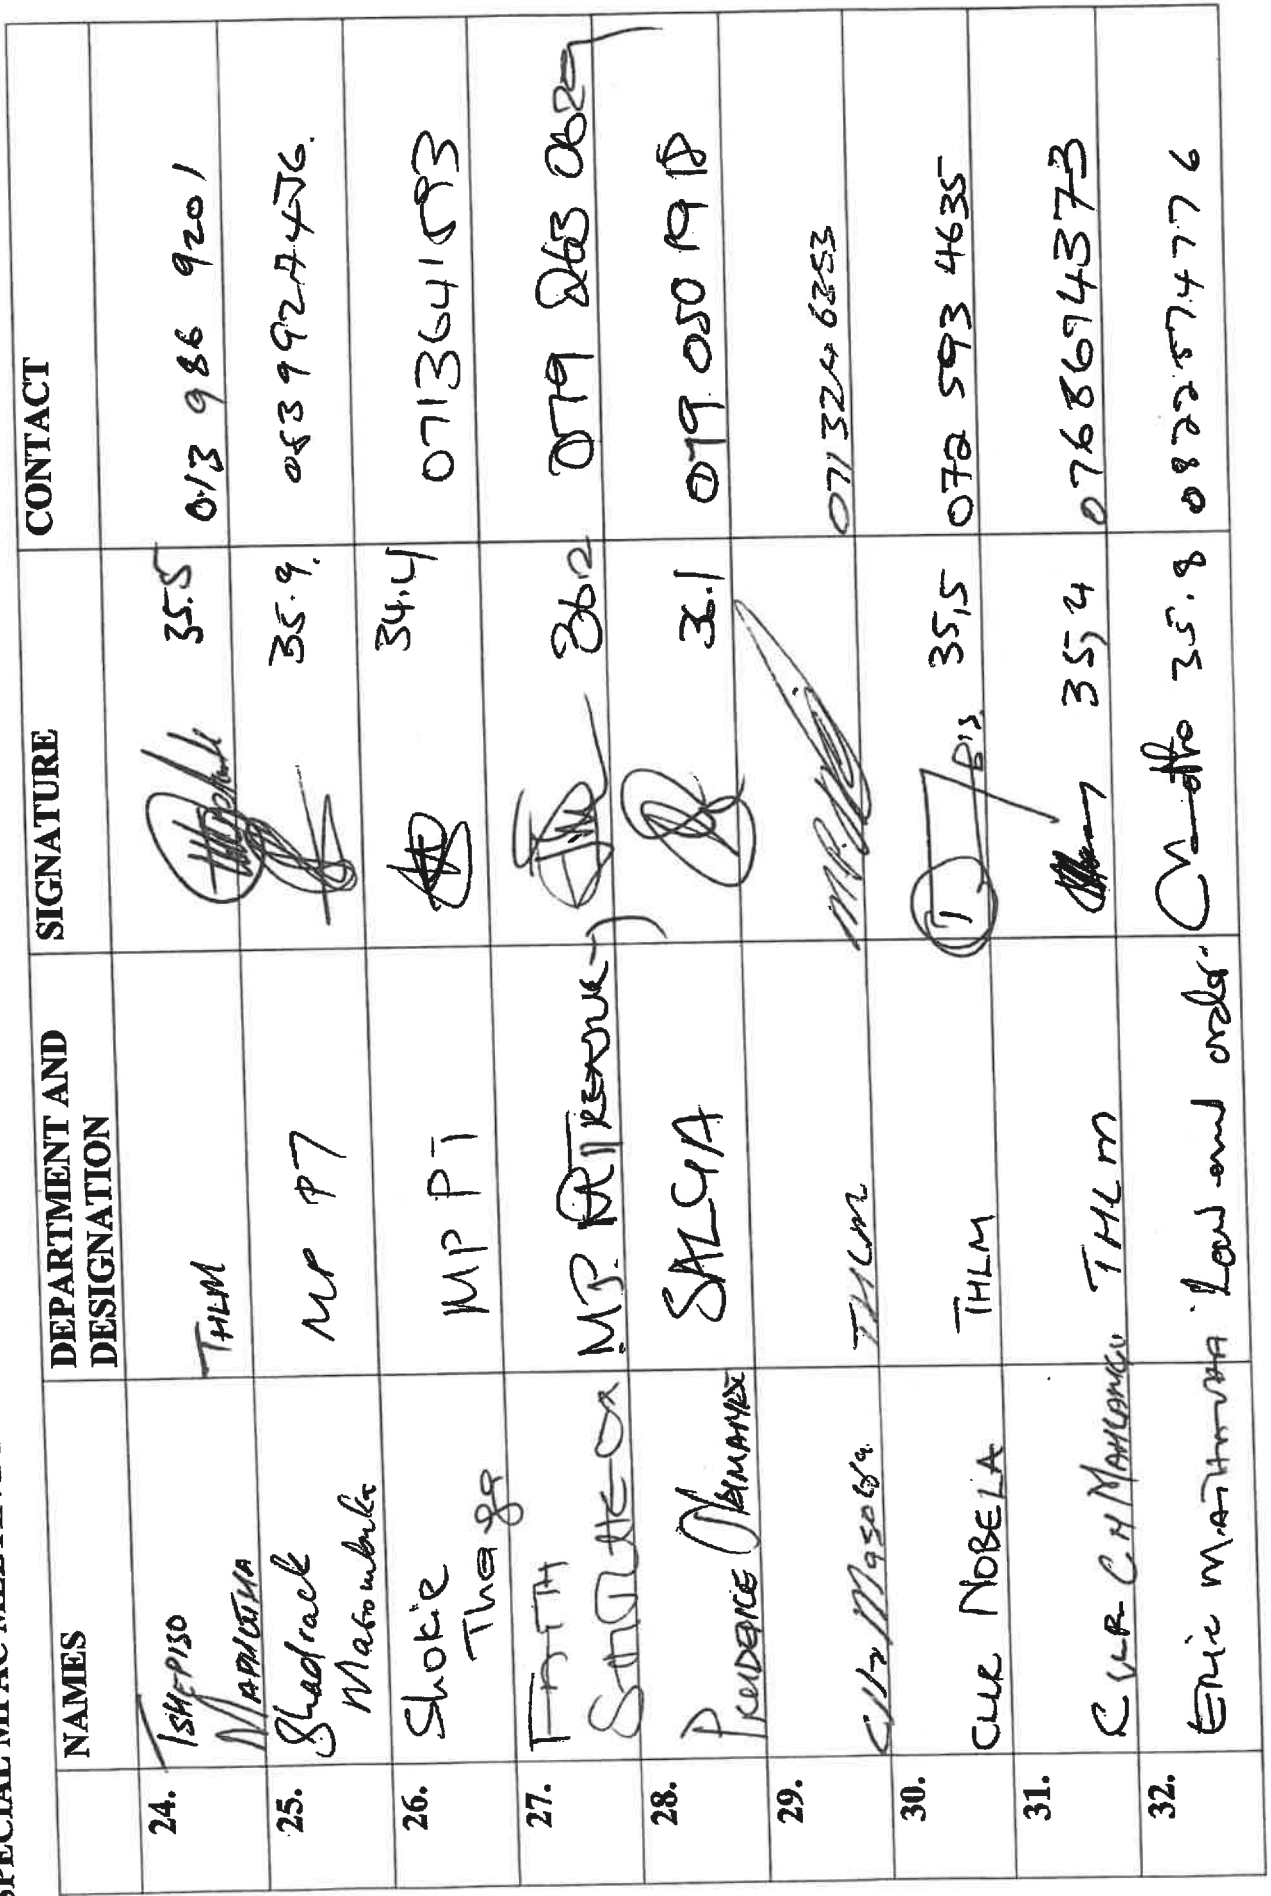 SPECIAL MPAC MEETING
NAMES DEPARTMENT AND DESIGNATION SIGNATURE CONTACT
24. TSHEPISO MAPHUTHA THLM 35.5 013 986 9201
25. Shadrack MP PT 35.9.
26. Shokie Thaga MP PT 34.4 0713641593
27. FAITH MP. TREASURY 36.2 079 263 062
28. PRUDENCE SALGA 36.1 079 050 1918
29. Cllr Masolga THLM
30. CLLR NOBELA THLM 35,5 072 593 4635
31. CLLR C.M MAHLANGU THLM 35,4 0768694373
32. Eric Law and order 35.8 0822574776